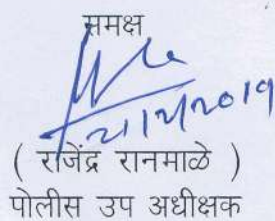 समक्ष
21/2/2019
( राजेंद्र रानमाळे )
पोलीस उप अधीक्षक